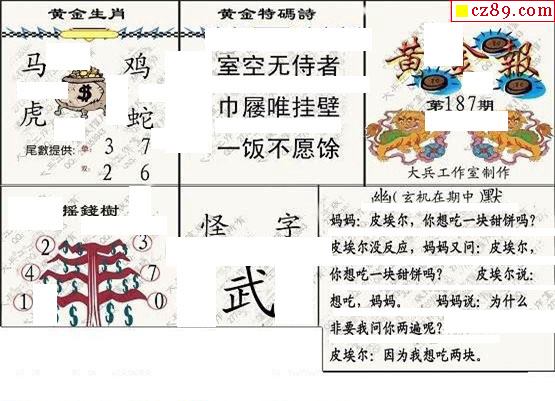 cz89.com
黄金生肖
马 鸡
虎 蛇
尾數提供: 单: 3 7
双: 2 6
黄金特碼詩
室空无侍者
巾屦唯挂壁
一饭不愿馀
黄金報
第187期
大兵工作室制作
摇錢樹
2 3
4 7
1 0
怪 字
武
幽(玄机在期中)默
妈妈：皮埃尔，你想吃一块甜饼吗？
皮埃尔没反应，妈妈又问：皮埃尔，
你想吃一块甜饼吗？ 皮埃尔说：
想吃，妈妈。 妈妈说：为什么
非要我问你两遍呢？
皮埃尔：因为我想吃两块。